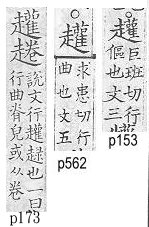 巨班切行
傴也文三
p153
求患切行
曲也文五
p562
說文行也一曰
行曲脊皃或从卷
p173